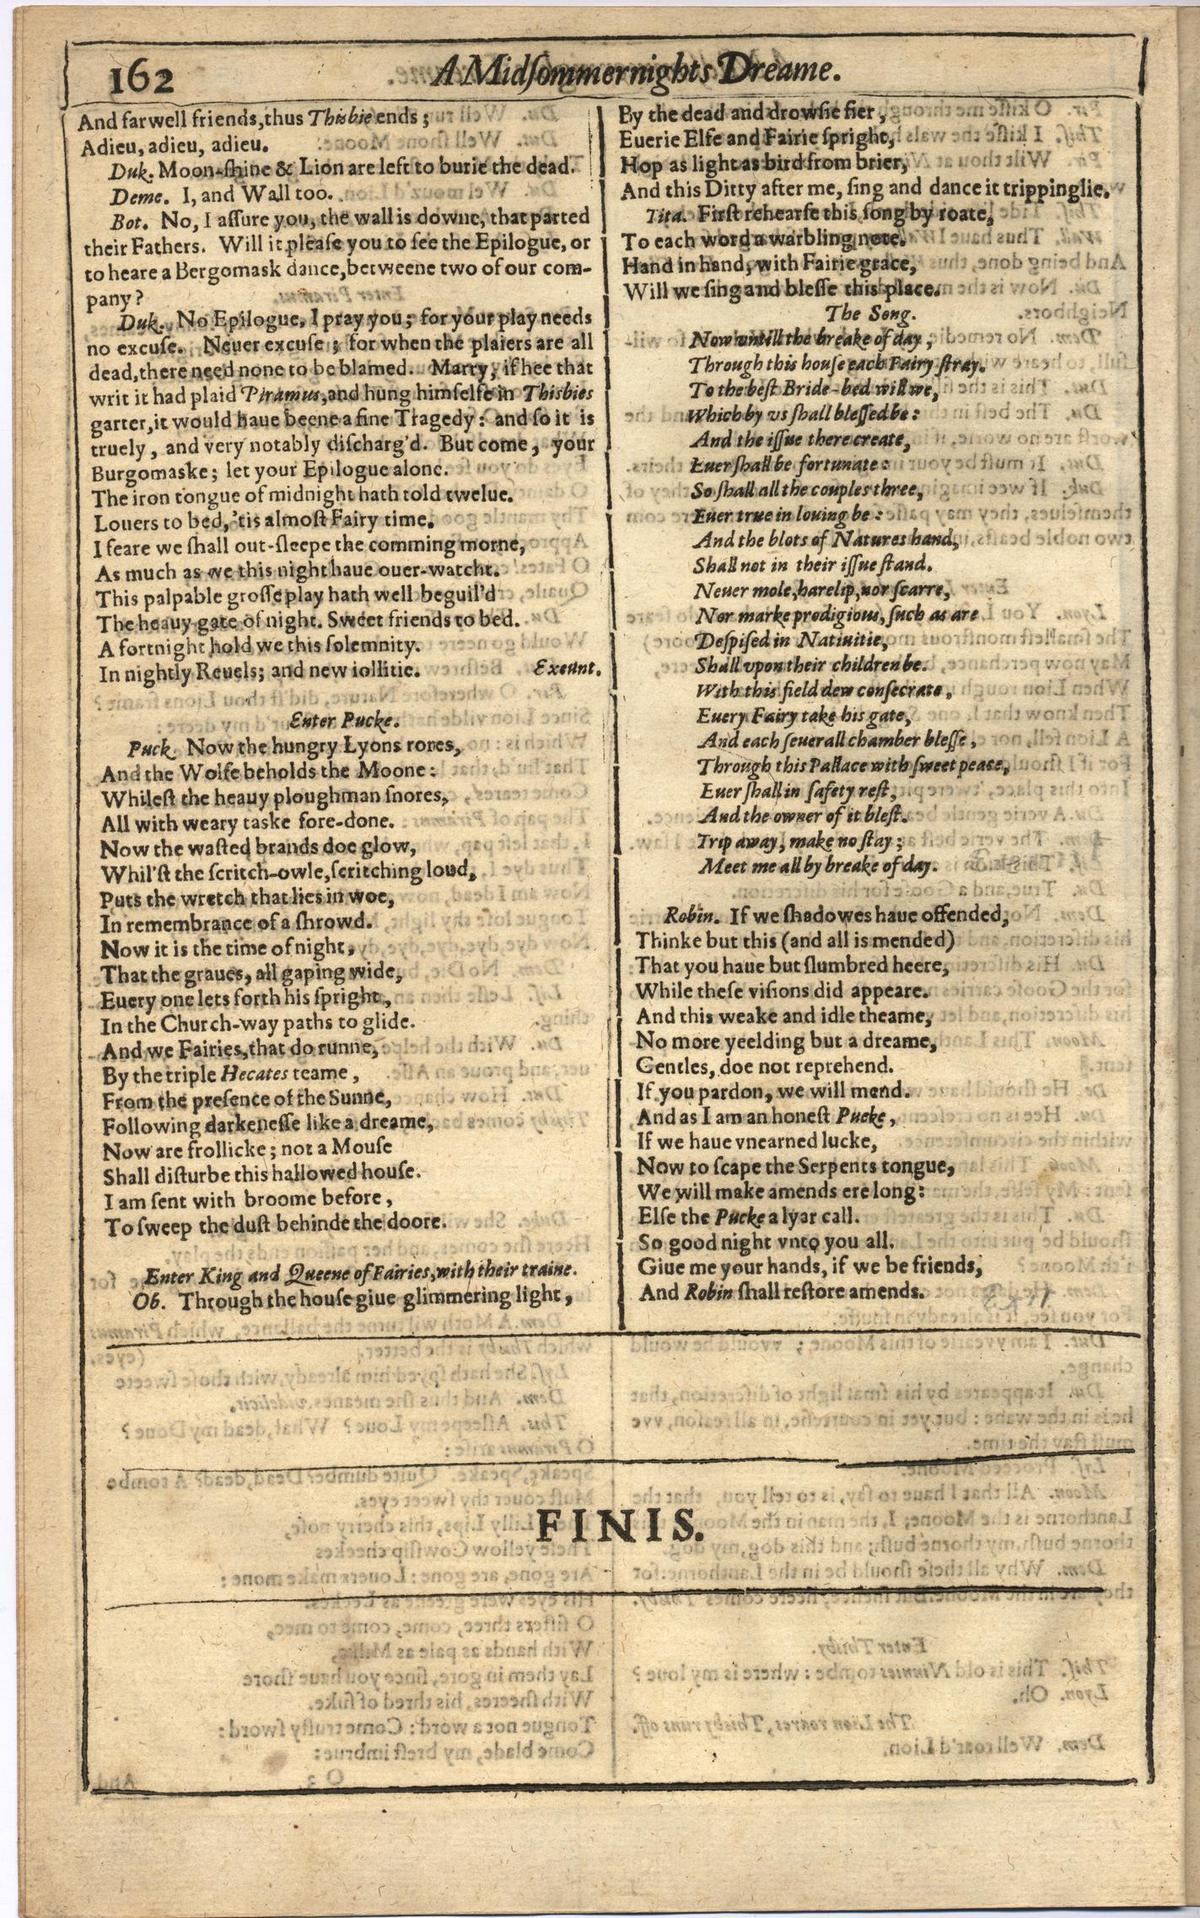 162
A Midſommer nights Dreame.
And farwell friends, thus Thisbie ends;
Adieu, adieu, adieu.
Duk. Moon-ſhine & Lion are left to burie the dead.
Deme. I, and Wall too.
Bot. No, I aſſure you, the wall is downe, that parted
their Fathers. Will it pleaſe you to ſee the Epilogue, or
to heare a Bergomask dance, betweene two of our com-
pany?
Duk. No Epilogue, I pray you; for your play needs
no excuſe. Neuer excuſe; for when the plaiers are all
dead, there need none to be blamed. Marry, if hee that
writ it had plaid Piramus, and hung himſelfe in Thisbies
garter, it would haue beene a fine Tragedy: and ſo it is
truely, and very notably diſcharg'd. But come, your
Burgomaske; let your Epilogue alone.
The iron tongue of midnight hath told twelue.
Louers to bed, 'tis almoſt Fairy time.
I feare we ſhall out-ſleepe the comming morne,
As much as we this night haue ouer-watcht.
This palpable groſſe play hath well beguil'd
The heauy gate of night. Sweet friends to bed.
A fortnight hold we this ſolemnity.
In nightly Reuels; and new iollitie. Exeunt.
Enter Pucke.
Puck. Now the hungry Lyons rores,
And the Wolfe beholds the Moone:
Whileſt the heauy ploughman ſnores,
All with weary taske fore-done.
Now the waſted brands doe glow,
Whil'ſt the ſcritch-owle, ſcritching loud,
Puts the wretch that lies in woe,
In remembrance of a ſhrowd.
Now it is the time of night,
That the graues, all gaping wide,
Euery one lets forth his ſpright,
In the Church-way paths to glide.
And we Fairies, that do runne,
By the triple Hecates teame,
From the preſence of the Sunne,
Following darkeneſſe like a dreame,
Now are frollicke; not a Mouſe
Shall diſturbe this hallowed houſe.
I am ſent with broome before,
To ſweep the duſt behinde the doore.
Enter King and Queene of Fairies, with their traine.
Ob. Through the houſe giue glimmering light,
By the dead and drowſie fier,
Euerie Elfe and Fairie ſpright,
Hop as light as bird from brier,
And this Ditty after me, ſing and dance it trippinglie.
Tita. Firſt rehearſe this ſong by roate,
To each word a warbling note.
Hand in hand, with Fairie grace,
Will we ſing and bleſſe this place.
The Song.
Now vntill the breake of day,
Through this houſe each Fairy ſtray.
To the beſt Bride-bed will we,
Which by vs ſhall bleſſed be:
And the iſſue there create,
Euer ſhall be fortunate:
So ſhall all the couples three,
Euer true in louing be:
And the blots of Natures hand,
Shall not in their iſſue ſtand.
Neuer mole, harelip, nor ſcarre,
Nor marke prodigious, ſuch as are
Deſpiſed in Natiuitie,
Shall vpon their children be.
With this field dew conſecrate,
Euery Fairy take his gate,
And each ſeuerall chamber bleſſe,
Through this Pallace with ſweet peace,
Euer ſhall in ſafety reſt,
And the owner of it bleſt.
Trip away, make no ſtay;
Meet me all by breake of day.
Robin. If we ſhadowes haue offended,
Thinke but this (and all is mended)
That you haue but ſlumbred heere,
While theſe viſions did appeare.
And this weake and idle theame,
No more yeelding but a dreame,
Gentles, doe not reprehend.
If you pardon, we will mend.
And as I am an honeſt Pucke,
If we haue vnearned lucke,
Now to ſcape the Serpents tongue,
We will make amends ere long:
Elſe the Pucke a lyar call.
So good night vnto you all.
Giue me your hands, if we be friends,
And Robin ſhall reſtore amends.
FINIS.